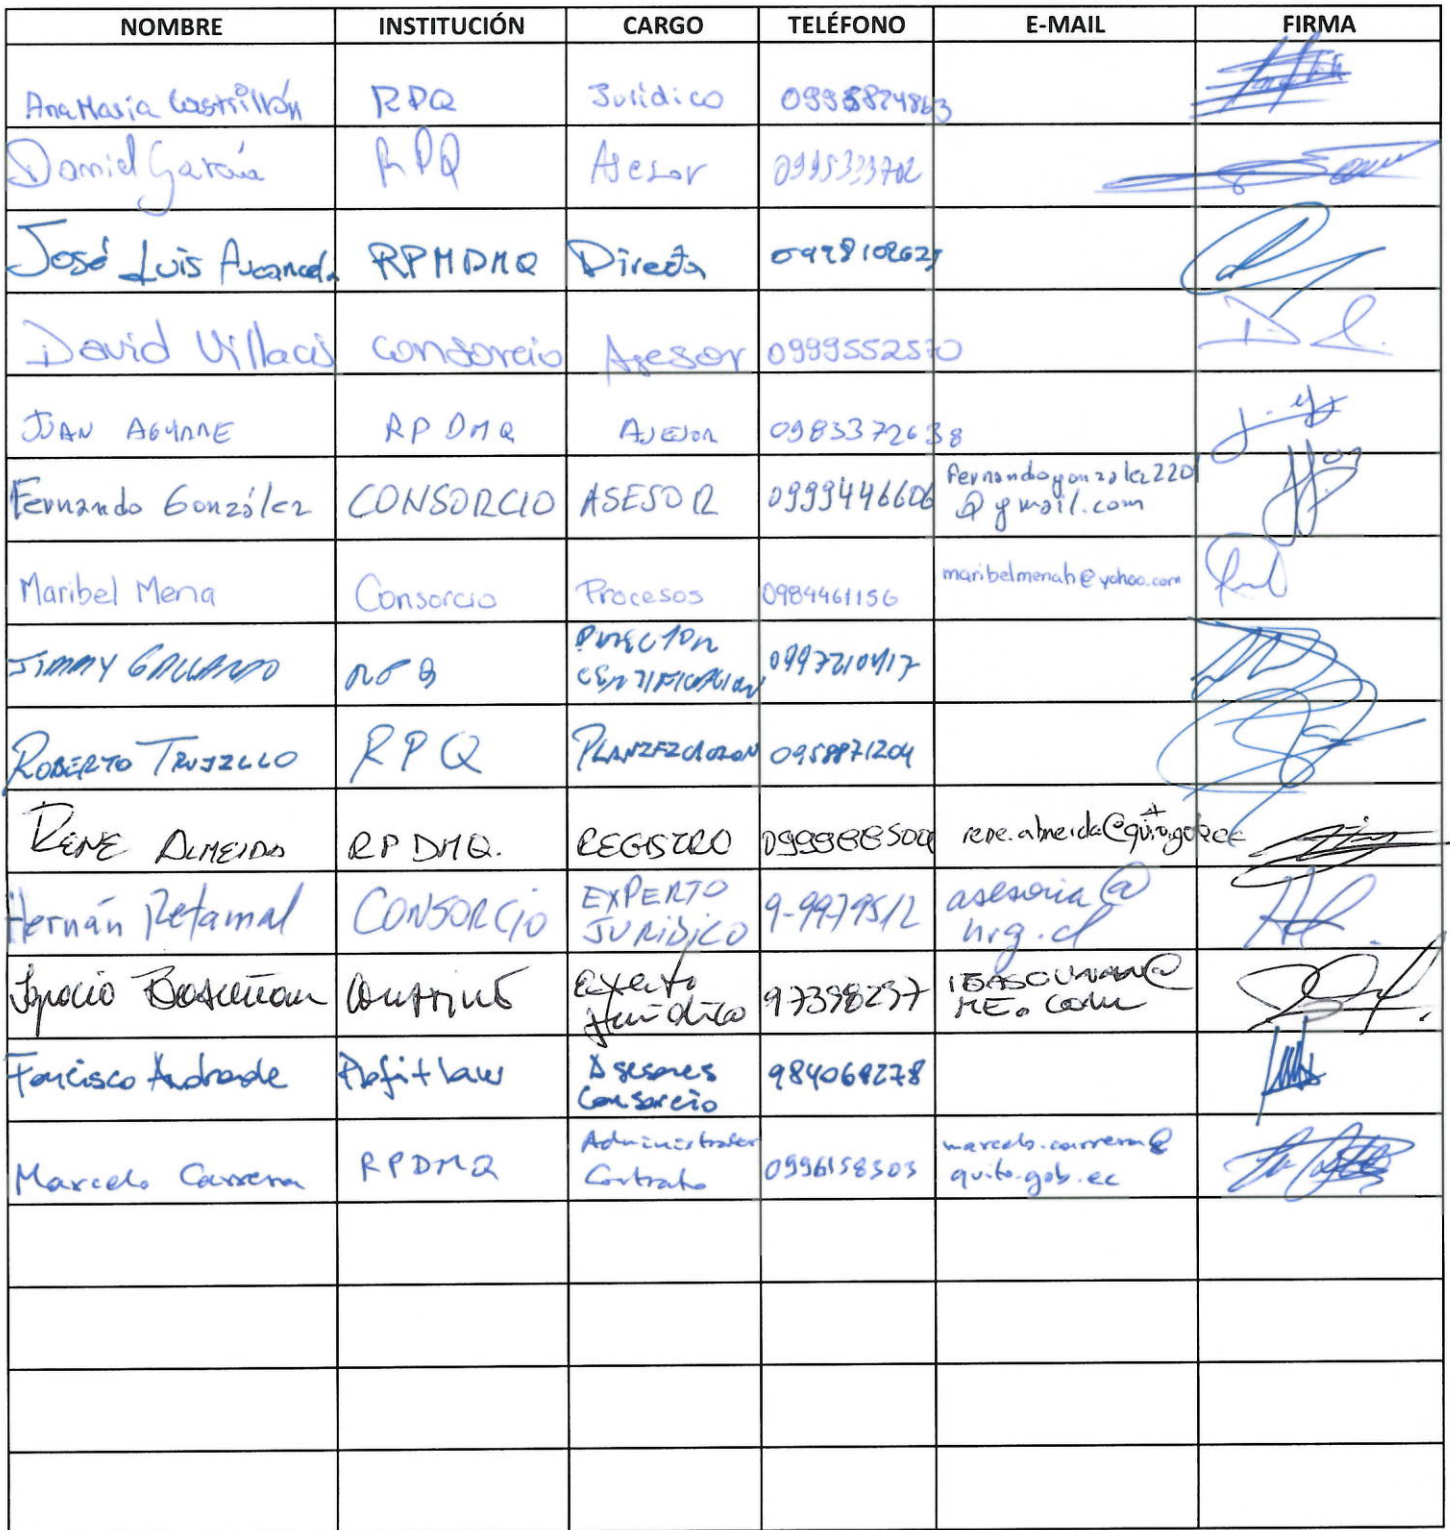 NOMBRE INSTITUCIÓN CARGO TELÉFONO E-MAIL FIRMA
Ana María Castrillón RPQ Jurídico 0995824863
Daniel García RPQ Asesor 0995333702
José Luis RPMDMQ
David Villacis Consorcio Asesor 0999552570
JUAN AGUIRRE RPDMQ ASESOR 0983372638
Fernando González CONSORCIO ASESOR 0999446606 fernandogonzalez2201
@gmail.com
Maribel Mena Consorcio Procesos 0984461156 maribelmenah@yahoo.com
JIMMY GALLARDO DIRECTOR
CERTIFICACION
ROBERTO TRUJILLO RPQ PLANIFICACION 0958871204
RENE ALMEIDA RPDMQ. REGISTRO rene.almeida@quito.gob.ec
Hernán Retamal CONSORCIO EXPERTO
JURIDICO 9-9979512 asesoria@
hrg.cl
Ignacio Experto
Jurídico 97398297 IBASCUNAN@
ME.COM
Francisco Andrade Asesores
Consorcio 984068278
Marcelo Carrera RPDMQ Administrador
Contrato 0996158303 marcelo.carrera@
quito.gob.ec